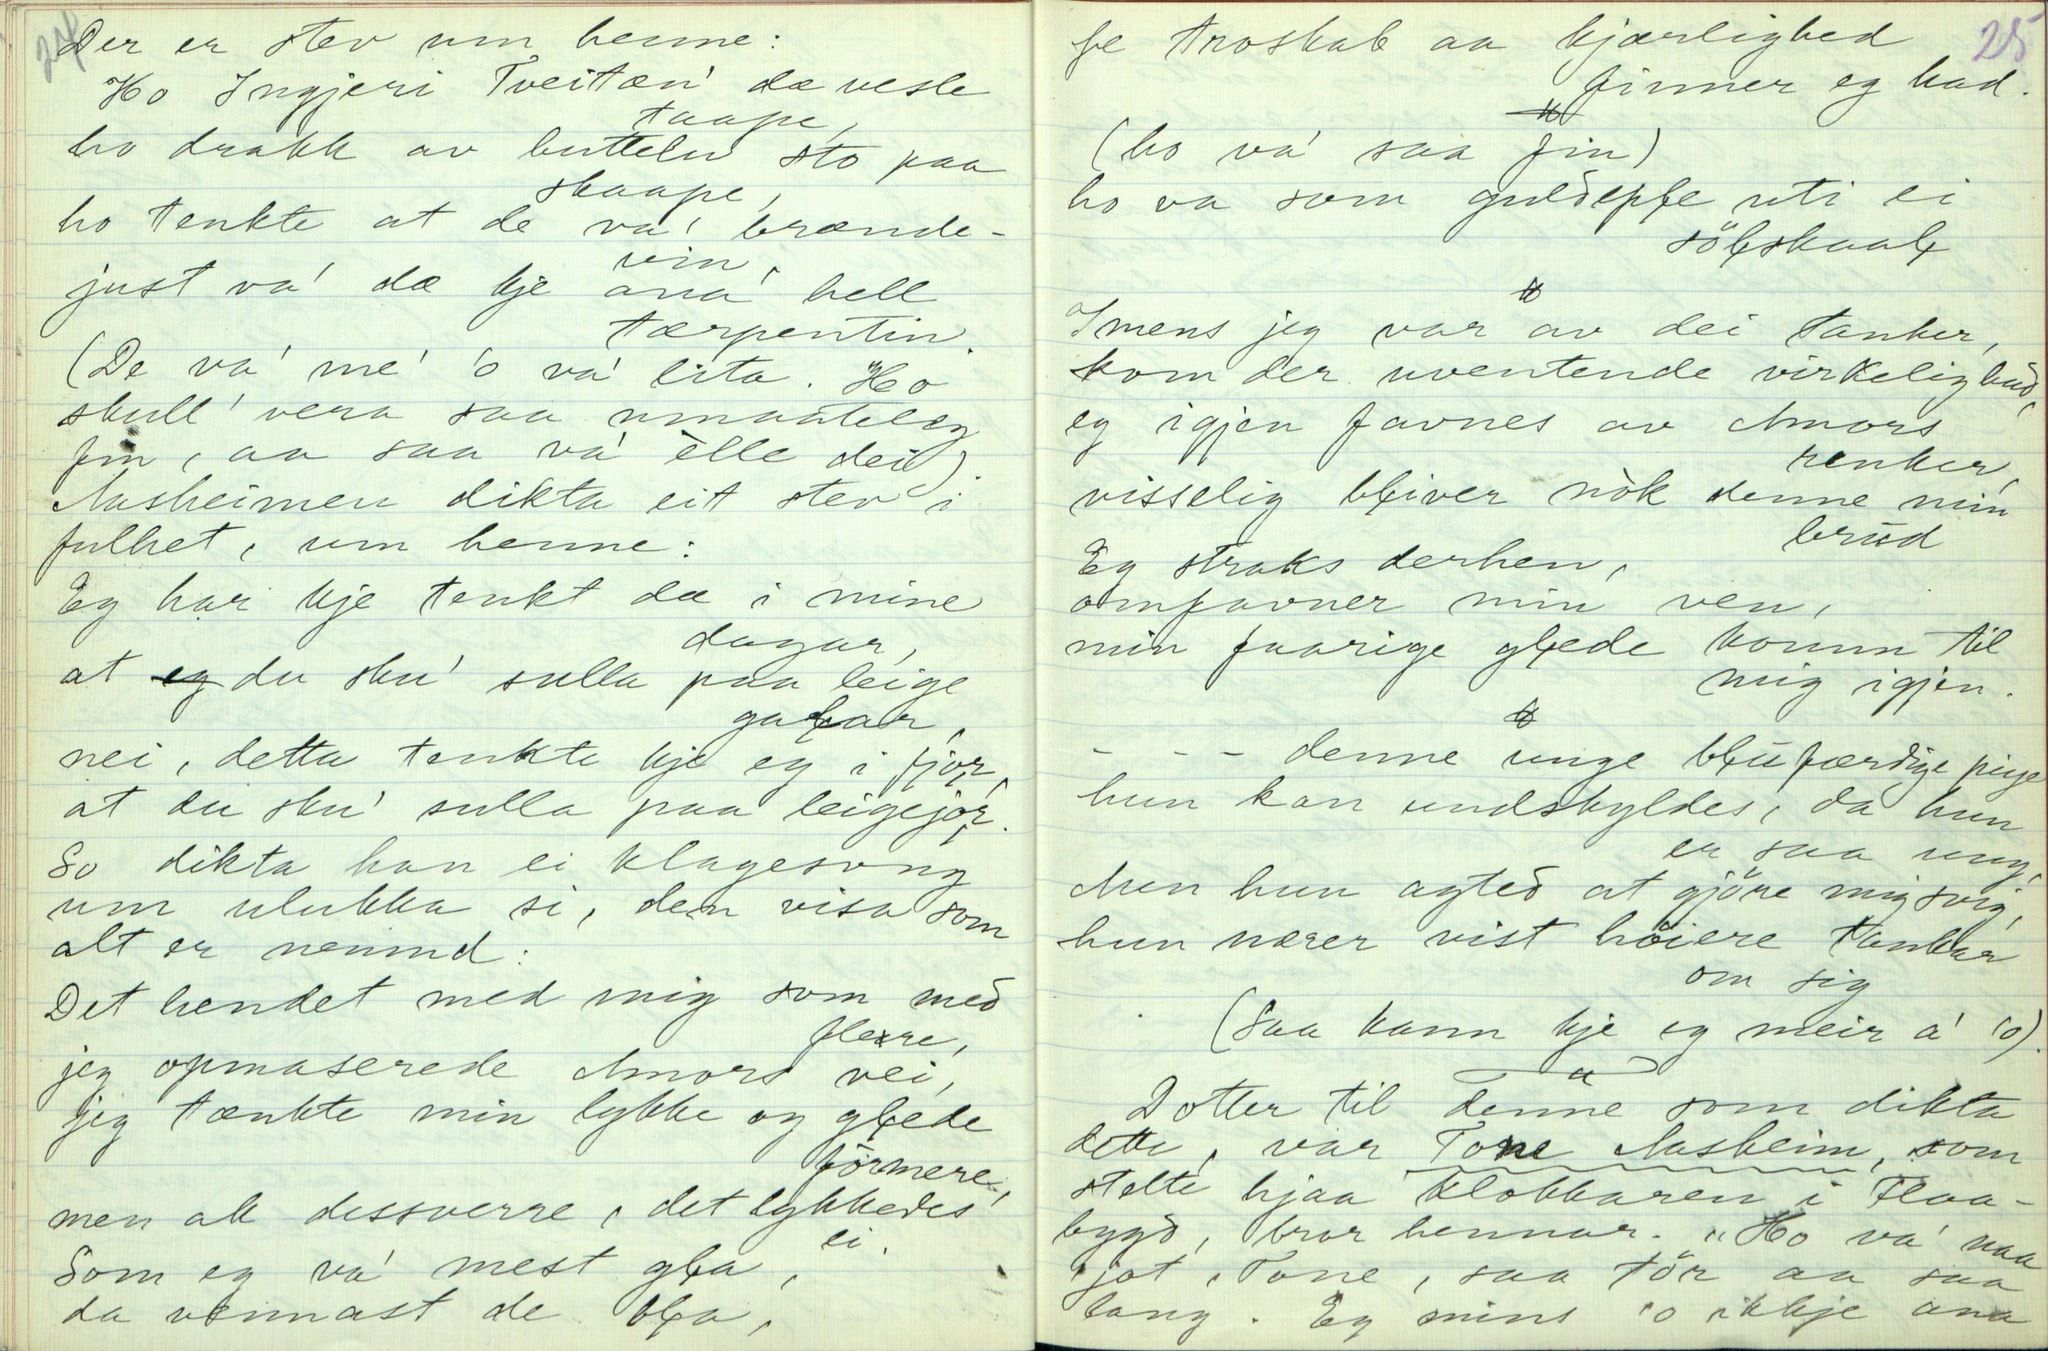 24
Der er stev um henne:
Ho Ingjeri Tveitæn' dæ vesle
taape,
ho drakk av buttelen sto paa
skaape,
ho tenkte at de va' brænde-
vin,
just va' dæ kje ana' hell
tærpentin.
(De va' me' 'o va' lita. Ho
skull' vera saa umaateleg
fin, aa saa va' èlle dei).
Aasheimen dikta eit stev i
fulhet, um henne:
Eg har kje tenkt dæ i mine
dagar,
at eg du sku' sulla paa leige
galar,
nei, detta tenkte kje eg i fjor,
at du sku' sulla paa leigejor.
So dikta han ei klagesong
um ulukka si, den visa som
alt er nemnd:
Det hendet med mig som med
flere,
jeg opmaserede Amors vei,
jeg tænkte min lykke og glede
förmere,
men ak dessverre, det lykkedes
ei.
Som eg va' mest gla,
da vennast de bla,
25
fe troskab aa kjærlighed
finner eg had.
(ho va' saa fin)
ho va som guldeple uti ei
sölskaal
Imens jeg var av dei tanker,
kom der uventende virkelig bud,
eg igjen favnes av Amors
renker,
visselig bliver nok denne min
brud
Eg straks derhen,
omfavner min ven,
min faarige glede komm til
mig igjen.
- - - denne unge blufærdige pige
hun kan undskyldes, da hun
er saa ung,
Men hun agted at gjöre mig svig,
hun nærer vist höiere tankar
om sig
(Saa kann kje eg meir a' 'o).
Dotter til denne som dikta
dette, var Tone Aasheim, som
stelte hjaa klokkaren i Flaa-
bygd, bror hennar. "Ho va' naa
jot, Tone, saa tör aa saa
lang. Eg mins 'o ikkje ana